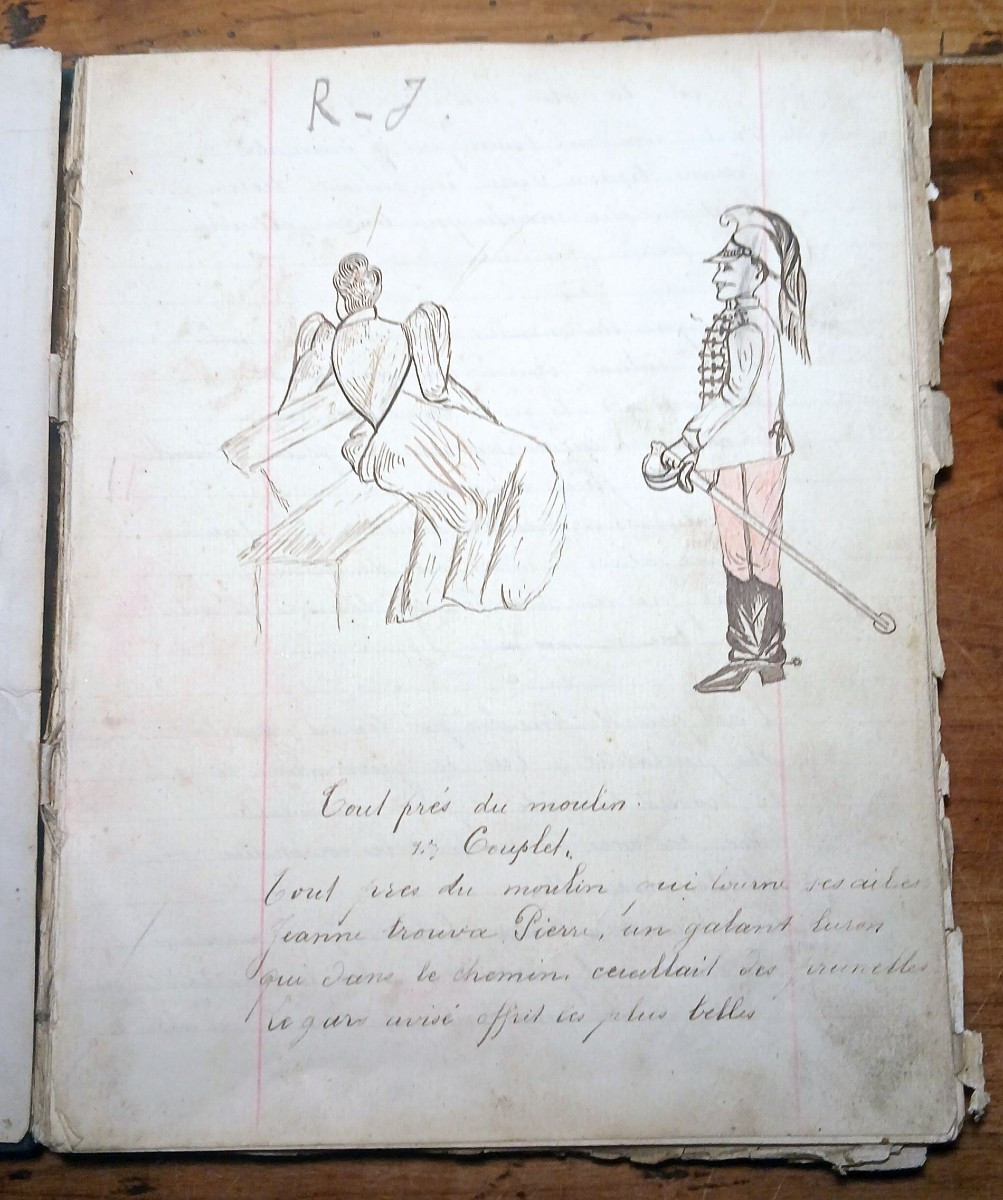 R - J.
Tout prés du moulin.
1er Couplet.
Tout pres du moulin qui tourne ses ailes
Jeanne trouva Pierre, un galant luron
qui dans le chemin, ceuillait des prunelles
Le gars avisé offrit les plus belles